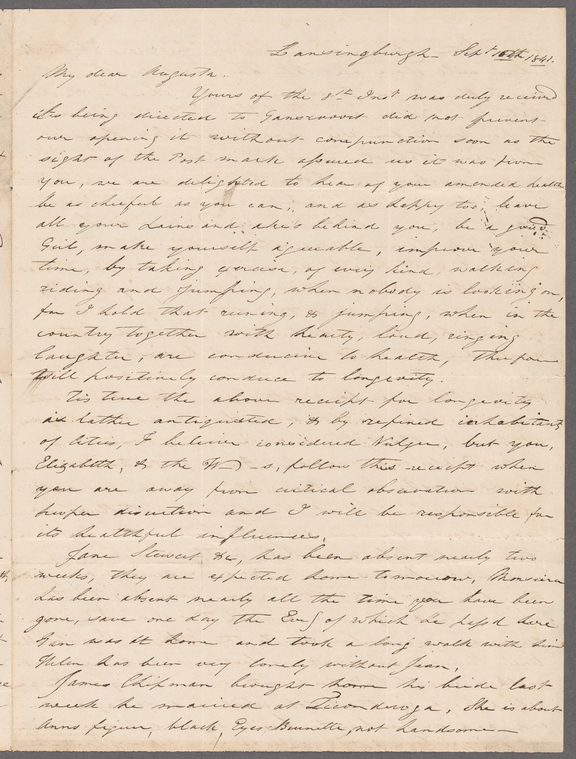 Lansingburgh - Sept 16th 1841.
My dear Augusta.
Yours of the 9th Inst was duly received
its being directed to Gansevoort did not prevent
our opening it without compunction soon as the
sight of the Post mark assured us it was from
you, we are delighted to hear of your amended health
be as cheerful as you can, and as happy too, leave
all your pains and ake's behind you, be a good
Girl, make yourself agreeable, improve your
time, by taking exercise, of every kind, walking
riding and jumping, when nobody is looking on,
for I hold that runing, & jumping, when in the
country together with hearty, loud, ringing
laughter, are conducive to health, therefore
will positively conduce to longevity.
Tis true the above receipt for longevity
is rather antiquated, & by refined inhabitants
of Cities, I believe considered Vulgar, but you,
Elizabeth, & the W-s, follow this receipt when
you are away from critical observation with
proper discretion and I will be responsible for
its healthful influences.
Jane Stewart &c, has been absent nearly two
weeks, they are expected home tomorrow, Monsieur
has been absent nearly all the time you have been
gone, save one day the Eveg of which he pass'd here
was at home and took a long walk with him
Helen has been very lonely without Jean,
James Chipman brought home his bride last
week he married at Ticonderoga, She is about
Anns figure, black Eyes Brunette, not handsome-